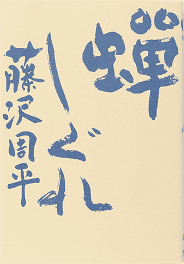 蟬しぐれ
藤沢周平